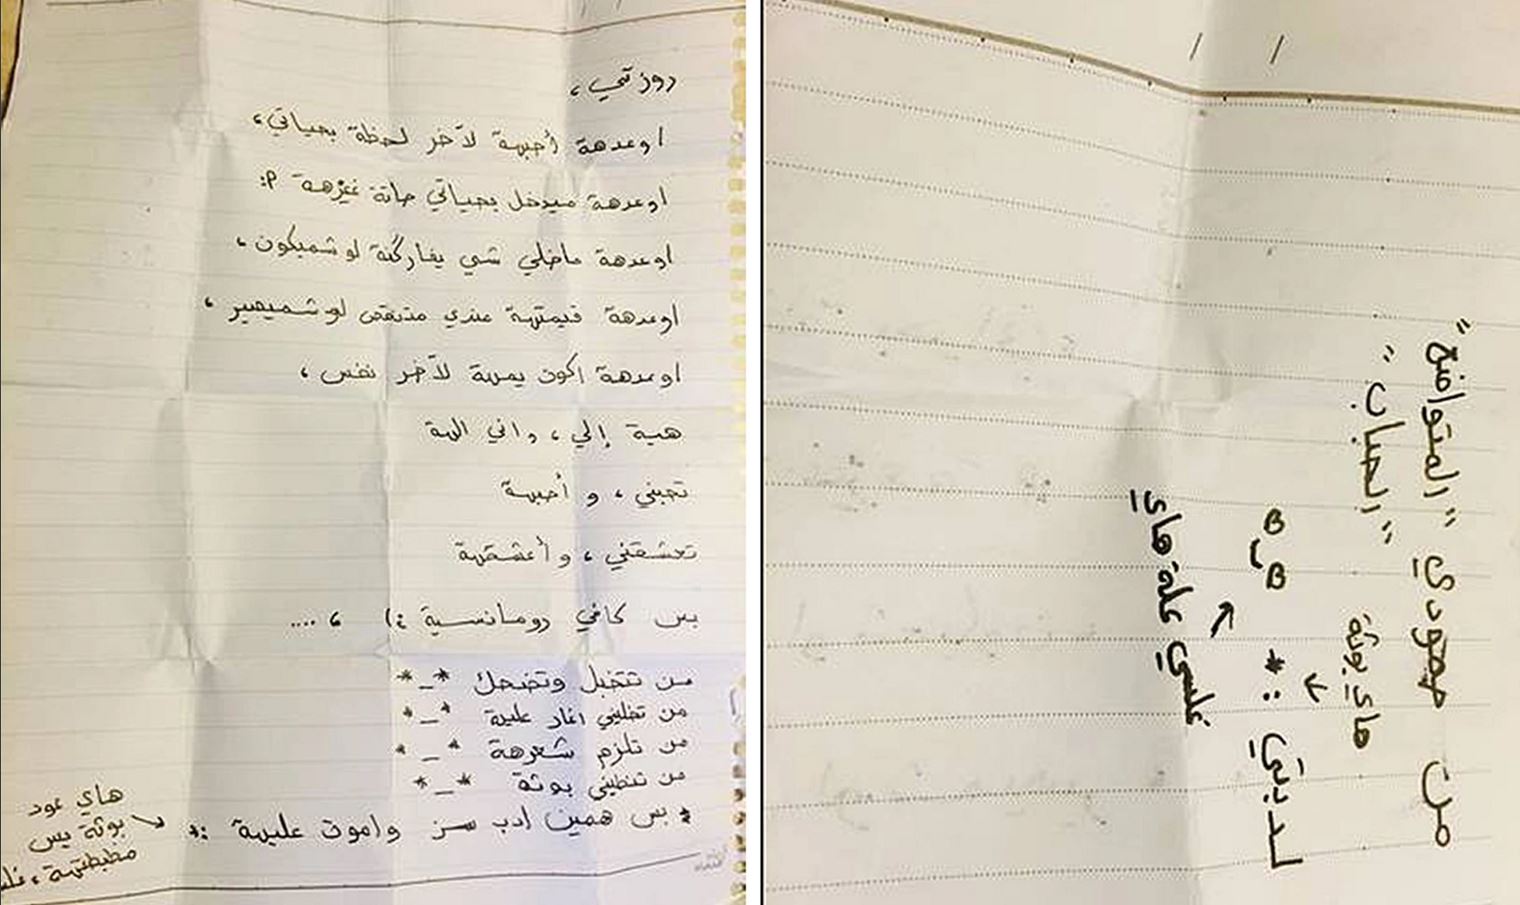 روزتي،
اوعدهة أحبهة لآخر لحظة بحياتي،
اوعدهة ميدخل بحياتي حاتة غيرهة :P
اوعدهة ماخلي شي يفاركنة لو شميكون،
اوعدهة قيمتهة عندي متنقص لو شميصير،
اوعدهة اكون يمهة لآخر نفس،
هية إلي، واني الهة
تحبني، و أحبهة
تعشقني، و أعشقهة
بس كافي رومانسية :) ، ....
من تتخبل وتضحك *_*
من تخليني اغار علية *_*
من تلزم شعرهة *_*
من تنطيني بوثة *_*
* بس همين ادب سز واموت عليهة :*
هاي عود
بوثة بس
مطبطتهة،
من حمودي "المتواضع"
"الحباب"
هاي بوثة
لدبتي :*
غلسي علة هاي